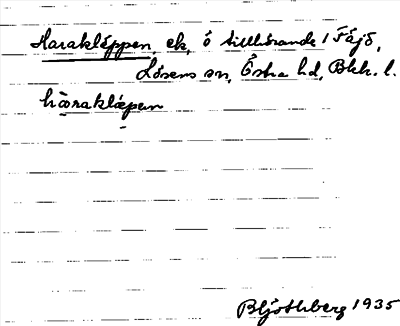 Harakläppen, ek, ö tillhörande 1 Föjö,
Lösens sn, Östra hd, Blek. l.
häraklæpen
1935